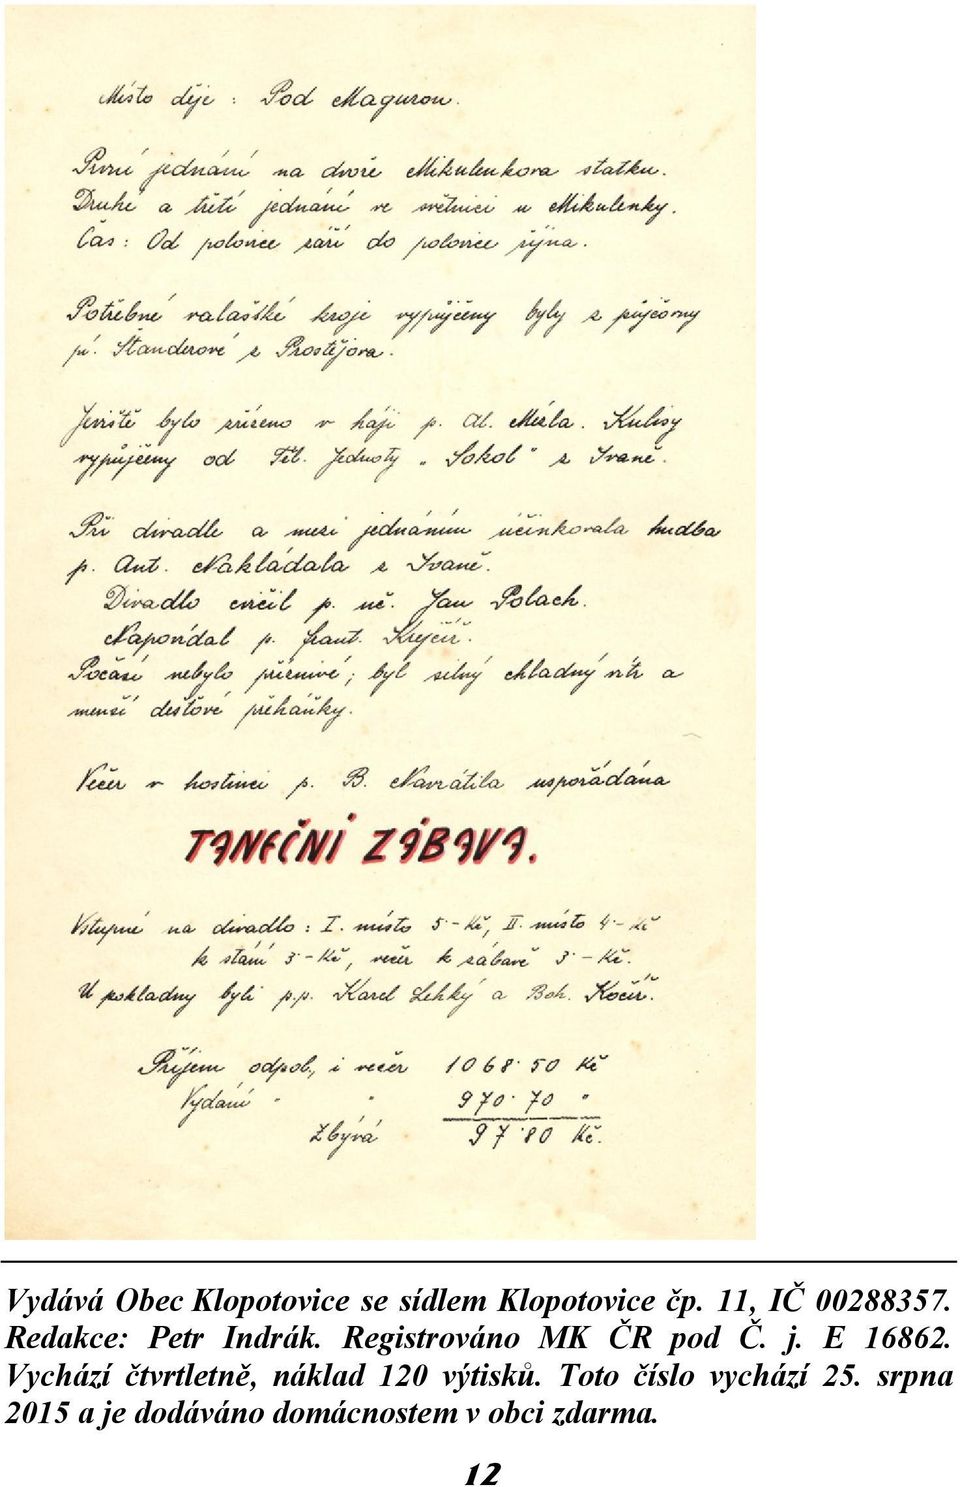 Místo děje : Pod Magurou.
První jednání na dvoře Mikulenkova statku.
Druhé a třetí jednání ve světnici u Mikulenky.
Čas : Od polovice září do polovice října.
Potřebné valašské kroje vypůjčeny byly z půjčovny
pí. Štanderové z Prostějova.
Jeviště bylo zřízeno v háji p. Al. Mézla. Kulisy
vypůjčeny od Těl. Jednoty „Sokol" z Ivaně.
Při divadle a mezi jednáním účinkovala hudba
p. Ant. Nakládala z Ivaně.
Divadlo cvičil p. uč. Jan Polach.
Napovídal p. Frant. Krejčíř.
Počasí nebylo příznivé; byl silný chladný vítr a
menší dešťové přeháňky.
Večer v hostinci p. B. Navrátila uspořádána
TANEČNÍ ZÁBAVA.
Vstupné na divadlo : I. místo 5·- Kč, II. místo 4·- Kč
k stání 3·- Kč, večer k zábavě 3·- Kč.
U pokladny byli p.p. Karel Lehký a Boh. Kočíř.
Příjem odpol., i večer 1068·50 Kč
Vydání " " 970·70 "
Zbývá 97·80 Kč.
Vydává Obec Klopotovice se sídlem Klopotovice čp. 11, IČ 00288357.
Redakce: Petr Indrák. Registrováno MK ČR pod Č. j. E 16862.
Vychází čtvrtletně, náklad 120 výtisků. Toto číslo vychází 25. srpna
2015 a je dodáváno domácnostem v obci zdarma.
12